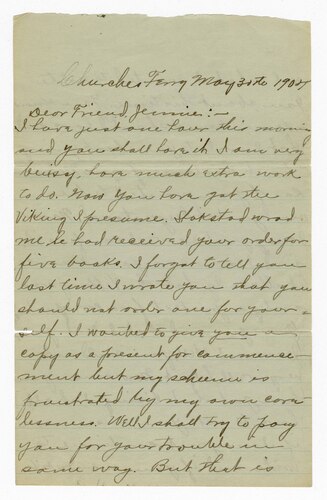 Churches Ferry May 30th 1904
Dear Friend Jennie:-
I have just one hour this morning
and you shall have it. I am very
buisy, have much extra work
to do. Now you have got the
Viking I presume. Lokstad wrad
me he had received your order for
five books. I forgot to tell you
last time I wrote you that you
should not order one for your-
self. I wanted to give you a
copy as a present for commence-
ment but my scheme is
frustrated by my own care
lessness. Well I shall try to pay
you for your trouble in
some way. But that is